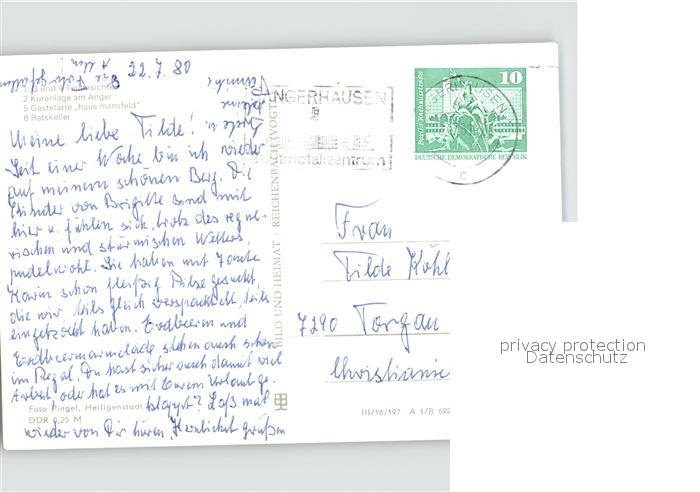 22.7.80
1, 3 und 4
2 Kuranlage am Anger
5 Gaststätte „haus mansfeld"
6 Ratskeller
Meine liebe Tilde!
Seit einer Woche bin ich wieder
auf meinem schönen Berg. Die
Kinder von Brigitte sind mit
hier u. fühlen sich, trotz des regne-
rischen und stürmischen Wetters,
pudelwohl. Sie haben mit Tante
Karin schon fleißig Pilze gesucht,
die wir teils gleich verspachtelt, teils
eingekocht haben. Erdbeeren und
Erdbeermarmelade stehen auch schon
im Regal. Du hast sicher auch damit viel
Arbeit, oder hat es mit Eurem Urlaub ge-
klappt? Laß mal
wieder von Dir hören. Herzlichst grüßen
Foto Pingel, Heiligenstadt
DDR 0,25 M
BILD UND HEIMAT · REICHENBACH (VOGTL
SANGERHAUSEN
10
Berlin, Rathausstraße
DEUTSCHE DEMOKRATISCHE REPUBLIK
c
Frau
Tilde Köhl
7290 Torgau
Christianie
III/18/197 A 1/B 692
privacy protection
Datenschutz